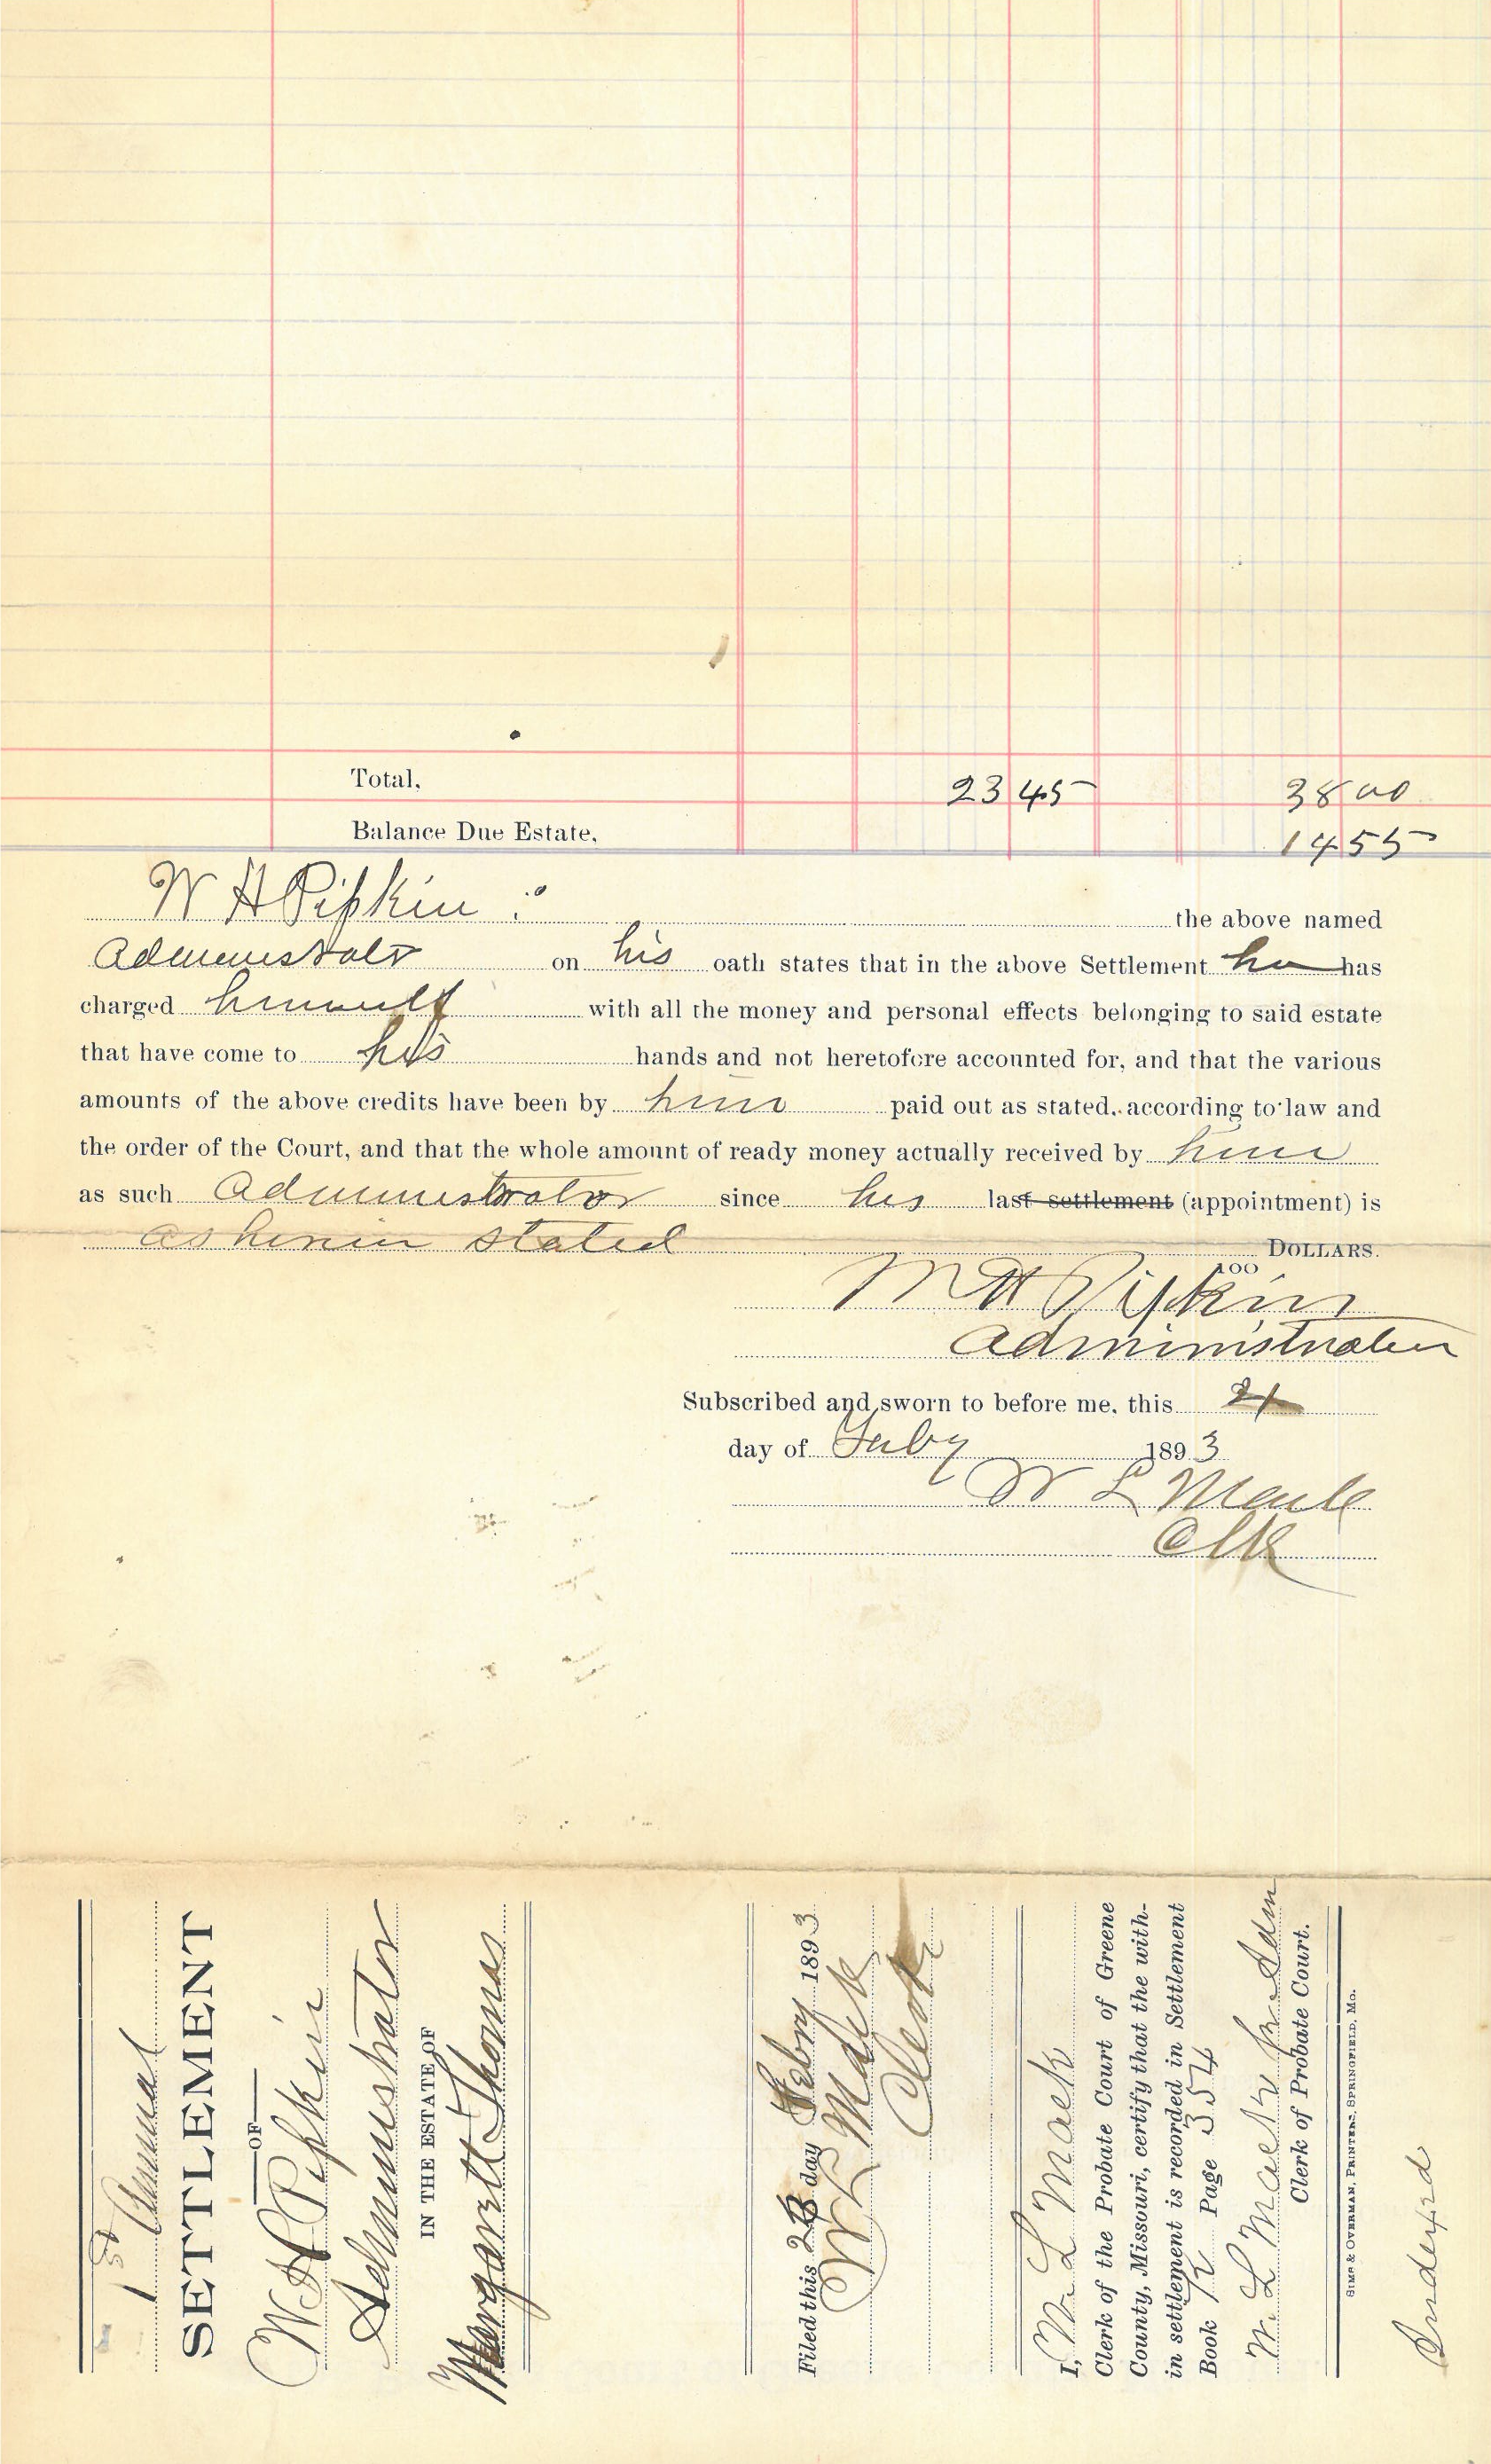 Total. 23 45 38 00
Balance Due Estate, 14 55
W H Pipkin the above named
Administrator on his oath states that in the above Settlement he has
charged himself with all the money and personal effects belonging to said estate
that have come to his hands and not heretofore accounted for, and that the various
amounts of the above credits have been by him paid out as stated, according to law and
the order of the Court, and that the whole amount of ready money actually received by him
as such Administrator since his last settlement (appointment) is
as herein stated DOLLARS.
100
W H Pipkin
Administrator
Subscribed and sworn to before me, this 21
day of Feby 1893
W L Mack
Clk
1st Annual
SETTLEMENT
OF
W H Pipkin
Administrator
IN THE ESTATE OF
Margarett Thomas
Filed this day Febry 1893
W L Mack
Clerk
I, W. L Mack
Clerk of the Probate Court of Greene
County, Missouri, certify that the with-
in settlement is recorded in Settlement
Book Page 354
W. L Mack
Clerk of Probate Court.
SIMS & OVERMAN, PRINTERS, SPRINGFIELD, MO.
Indexed